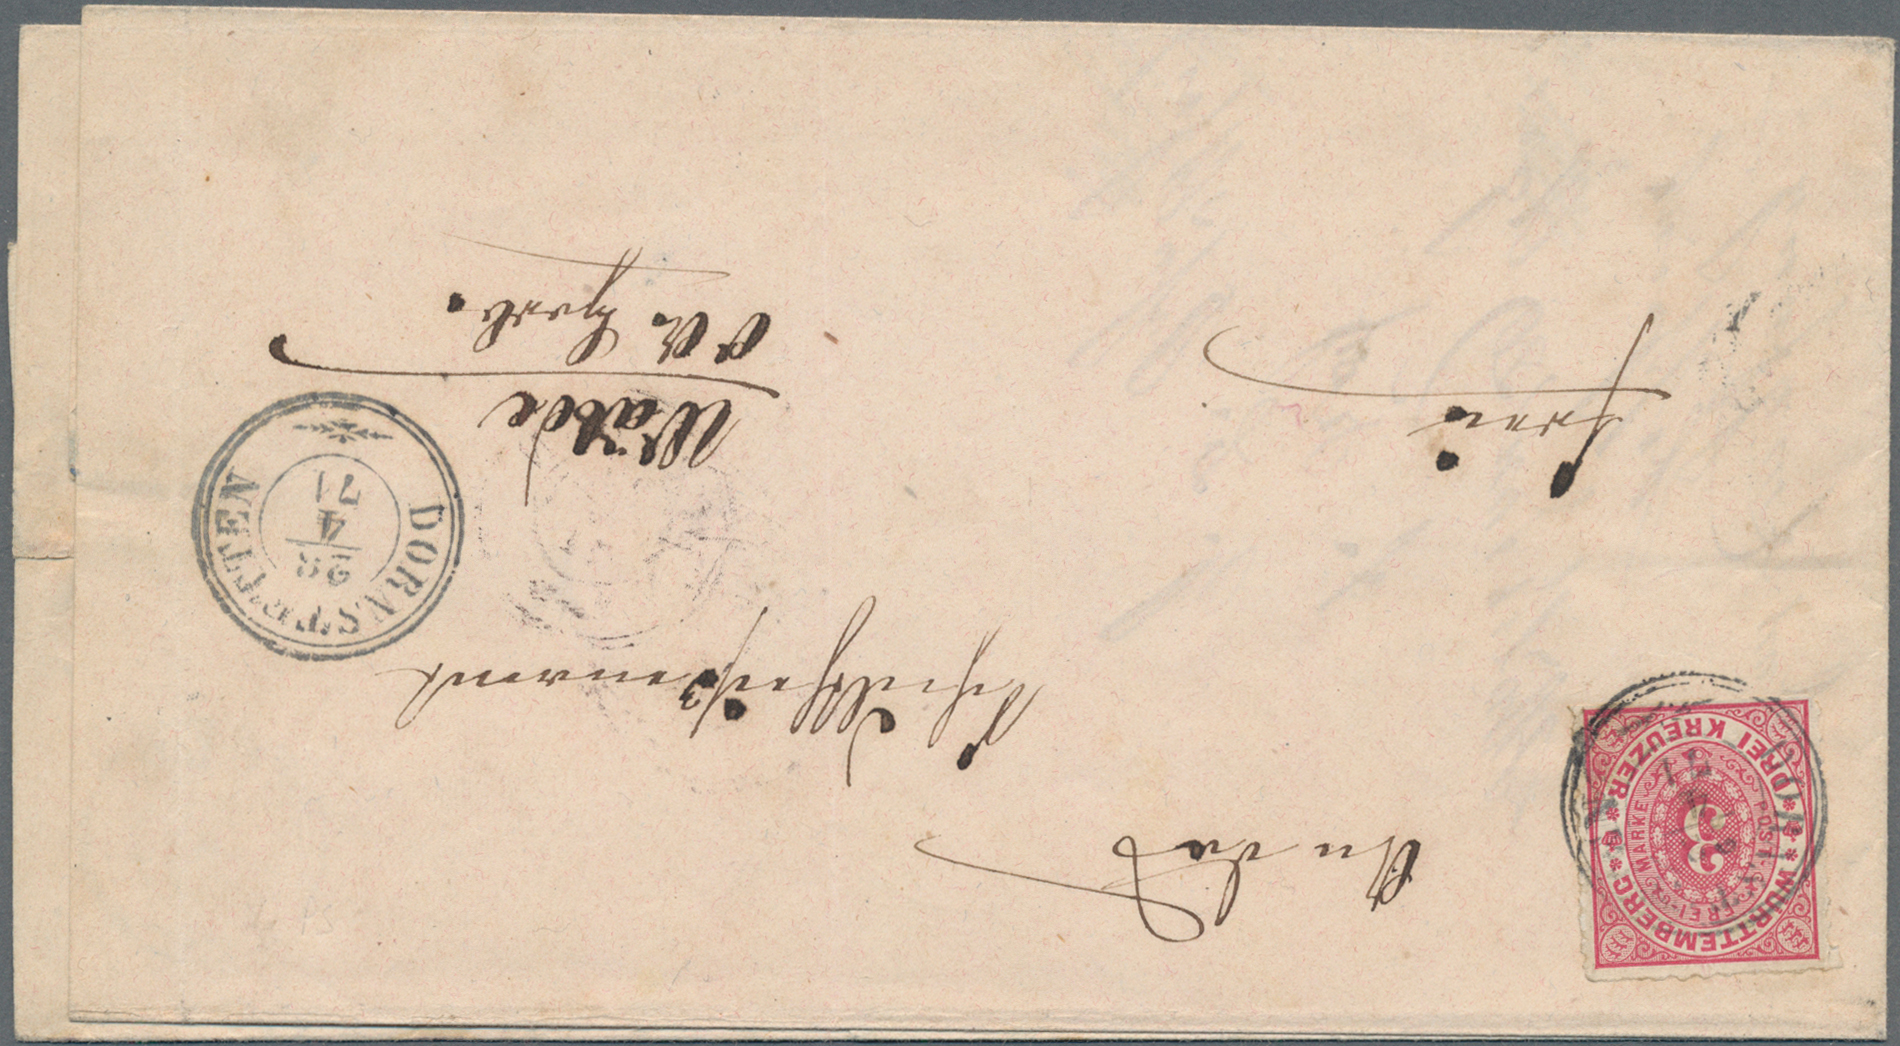 An das
Schultheißenamt
Wälde
OA. Horb.
frei
DORNSTETTEN
28
4
71
WÜRTTEMBERG
DREI KREUZER
POST-FREI-MARKE
3